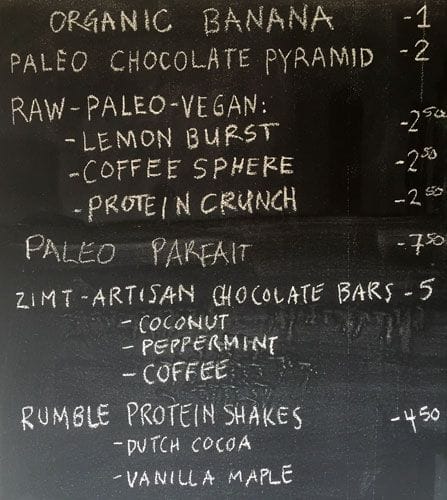 ORGANIC BANANA -1
PALEO CHOCOLATE PYRAMID -2
RAW-PALEO-VEGAN:
-LEMON BURST -2 50
-COFFEE SPHERE -2 50
-PROTEIN CRUNCH -2 50
PALEO PARFAIT -7 50
ZIMT-ARTISAN CHOCOLATE BARS -5
-COCONUT
-PEPPERMINT
-COFFEE
RUMBLE PROTEIN SHAKES -4 50
-DUTCH COCOA
-VANILLA MAPLE